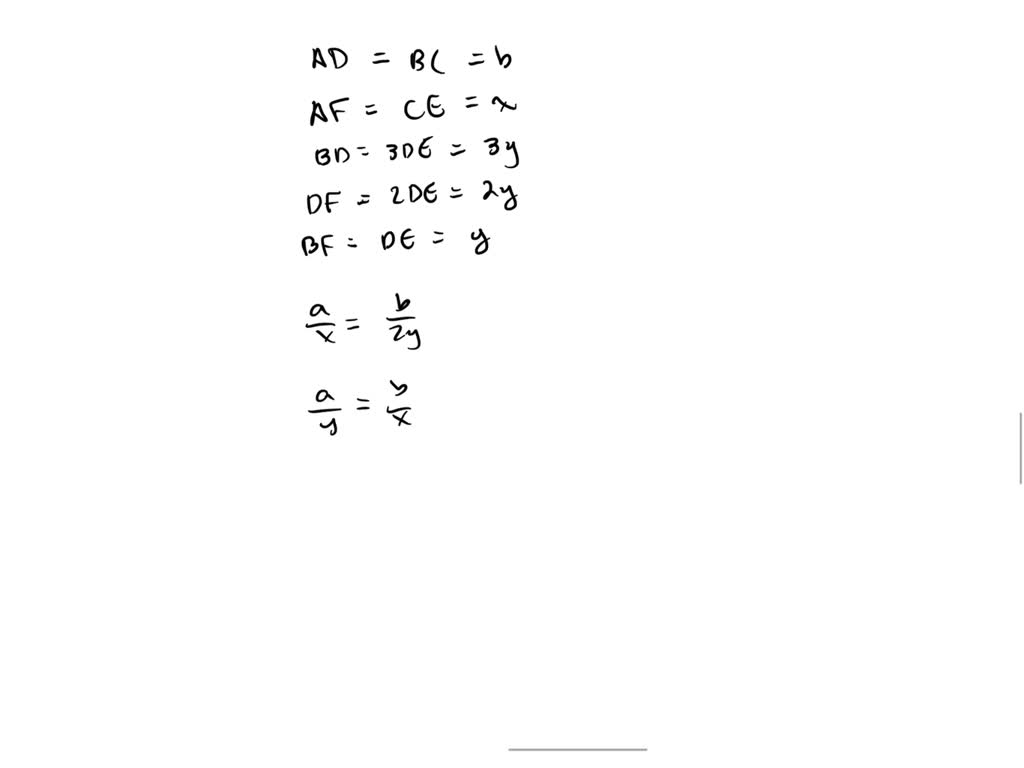 AD = BC = b
AF = CE = x
BD = 3DE = 3y
DF = 2DE = 2y
BF = DE = y
a/x = b/2y
a/y = b/x